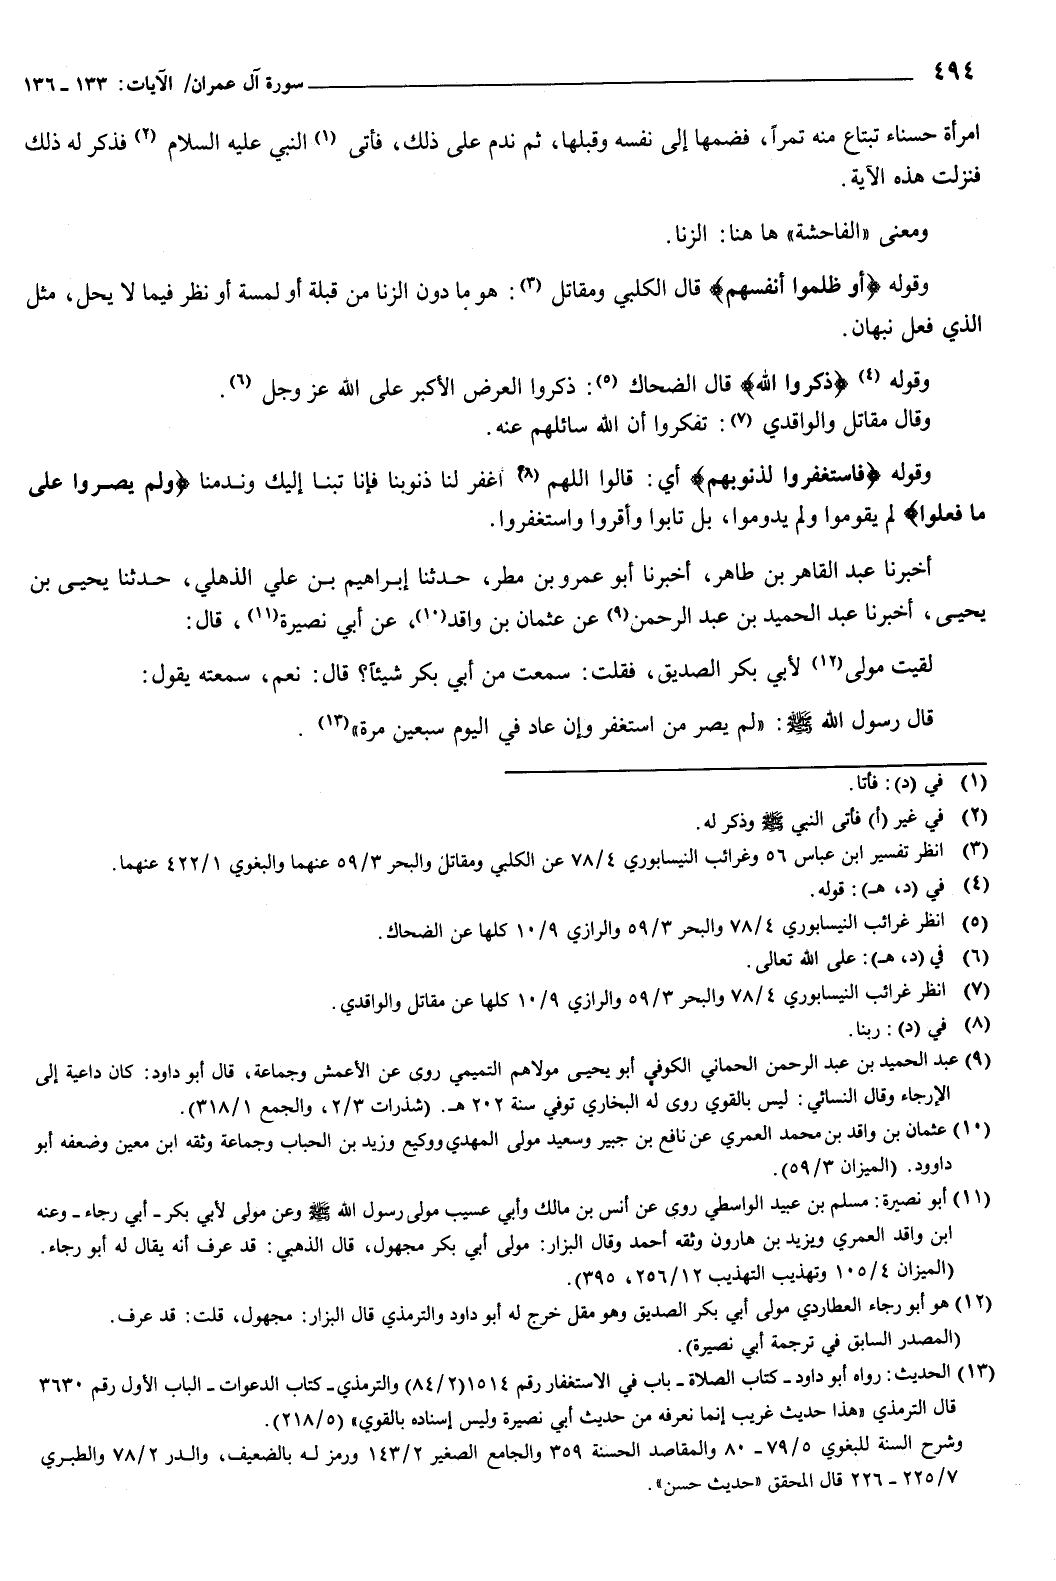 ٤٩٤ سورة آل عمران/ الآيات: ١٣٣ ـ ١٣٦
امرأة حسناء تبتاع منه تمراً، فضمها إلى نفسه وقبلها، ثم ندم على ذلك، فأتى (١) النبي عليه السلام (٢) فذكر له ذلك
فنزلت هذه الآية.
ومعنى «الفاحشة» ها هنا: الزنا.
وقوله ﴿أو ظلموا أنفسهم﴾ قال الكلبي ومقاتل (٣): هو ما دون الزنا من قبلة أو لمسة أو نظر فيما لا يحل، مثل
الذي فعل نبهان.
وقوله (٤) ﴿ذكروا الله﴾ قال الضحاك (٥): ذكروا العرض الأكبر على الله عز وجل (٦).
وقال مقاتل والواقدي (٧): تفكروا أن الله سائلهم عنه.
وقوله ﴿فاستغفروا لذنوبهم﴾ أي: قالوا اللهم (٨) اغفر لنا ذنوبنا فإنا تبنا إليك وندمنا ﴿ولم يصروا على
ما فعلوا﴾ لم يقوموا ولم يدوموا، بل تابوا وأقروا واستغفروا.
أخبرنا عبد القاهر بن طاهر، أخبرنا أبو عمرو بن مطر، حدثنا إبراهيم بن علي الذهلي، حدثنا يحيى بن
يحيى، أخبرنا عبد الحميد بن عبد الرحمن(٩) عن عثمان بن واقد(١٠)، عن أبي نصيرة(١١)، قال:
لقيت مولى(١٢) لأبي بكر الصديق، فقلت: سمعت من أبي بكر شيئاً؟ قال: نعم، سمعته يقول:
قال رسول الله ﷺ: «لم يصر من استغفر وإن عاد في اليوم سبعين مرة»(١٣).
(١) في (د): فأتا.
(٢) في غير (أ) فأتى النبي ﷺ وذكر له.
(٣) انظر تفسير ابن عباس ٥٦ وغرائب النيسابوري ٧٨/٤ عن الكلبي ومقاتل والبحر ٥٩/٣ عنهما والبغوي ٤٢٢/١ عنهما.
(٤) في (د، هـ): قوله.
(٥) انظر غرائب النيسابوري ٧٨/٤ والبحر ٥٩/٣ والرازي ١٠/٩ كلها عن الضحاك.
(٦) في (د، هـ): على الله تعالى.
(٧) انظر غرائب النيسابوري ٧٨/٤ والبحر ٥٩/٣ والرازي ١٠/٩ كلها عن مقاتل والواقدي.
(٨) في (د): ربنا.
(٩) عبد الحميد بن عبد الرحمن الحماني الكوفي أبو يحيى مولاهم التميمي روى عن الأعمش وجماعة، قال أبو داود: كان داعية إلى
الإرجاء وقال النسائي: ليس بالقوي روى له البخاري توفي سنة ٢٠٢ هـ. (شذرات ٢/٣، والجمع ٣١٨/١).
(١٠) عثمان بن واقد بن محمد العمري عن نافع بن جبير وسعيد مولى المهدي ووكيع وزيد بن الحباب وجماعة وثقه ابن معين وضعفه أبو
داوود. (الميزان ٥٩/٣).
(١١) أبو نصيرة: مسلم بن عبيد الواسطي روى عن أنس بن مالك وأبي عسيب مولى رسول الله ﷺ وعن مولى لأبي بكر ـ أبي رجاء ـ وعنه
ابن واقد العمري ويزيد بن هارون وثقه أحمد وقال البزار: مولى أبي بكر مجهول، قال الذهبي: قد عرف أنه يقال له أبو رجاء.
(الميزان ١٠٥/٤ وتهذيب التهذيب ٢٥٦/١٢، ٣٩٥).
(١٢) هو أبو رجاء العطاردي مولى أبي بكر الصديق وهو مقل خرج له أبو داود والترمذي قال البزار: مجهول، قلت: قد عرف.
(المصدر السابق في ترجمة أبي نصيرة).
(١٣) الحديث: رواه أبو داود ـ كتاب الصلاة ـ باب في الاستغفار رقم ١٥١٤(٨٤/٢) والترمذي ـ كتاب الدعوات ـ الباب الأول رقم ٣٦٣٠
قال الترمذي «هذا حديث غريب إنما نعرفه من حديث أبي نصيرة وليس إسناده بالقوي» (٢١٨/٥).
وشرح السنة للبغوي ٧٩/٥ ـ ٨٠ والمقاصد الحسنة ٣٥٩ والجامع الصغير ١٤٣/٢ ورمز له بالضعيف، والدر ٧٨/٢ والطبري
٢٢٥/٧ ـ ٢٢٦ قال المحقق «حديث حسن».